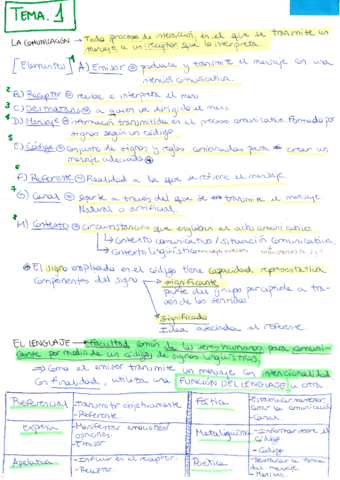 TEMA. 1
LA COMUNICACIÓN → Todo proceso de interacción, en el que se transmite un
mensaje a un receptor que lo interpreta.
[Elementos] A) Emisor ⊖ produce y transmite el mensaje con una
intención comunicativa.
B) Receptor ⊖ recibe e interpreta el men.
C) Destinatario ⊖ a quien va dirigido el mens.
D) Mensaje ⊖ información transmitida en el proceso comunicativo formada por
signos según un código
E) Código ⊖ conjunto de signos y reglas combinadas para crear un
mensaje adecuado
F) Referente ⊖ Realidad a la que se refiere el mensaje.
G) Canal ⊖ soporte a través del que se transmite el mensaje.
Natural o artificial.
H) Contexto ⊖ circunstancias que engloban el acto comunicativo.
↳ contexto comunicativo / situación comunicativa.
↳ contexto lingüístico
El signo empleado en el código tiene capacidad representativa
Componentes del signo → significante
parte del grupo perceptible a tra-
vés de los sentidos.
Significado
Idea asociada al referente.
EL LENGUAJE → Facultad común de los seres humanos, para comuni-
carse por medio de un código de signos lingüísticos.
⇒ Como el emisor transmite un mensaje con intencionalidad
con finalidad, utiliza una FUNCIÓN DEL LENGUAJE u otra.
Referencial - Transmitir objetivamente - Referente.
Fática - Establecer, mantener, cortar la comunicación - Canal.
Expresiva - Manifestar emociones opiniones. - Emisor
Metalingüística - Informar sobre el código - Código
Apelativa - Influir en el receptor. - Receptor.
Poética - Destacar la forma del mensaje - Mensaje.